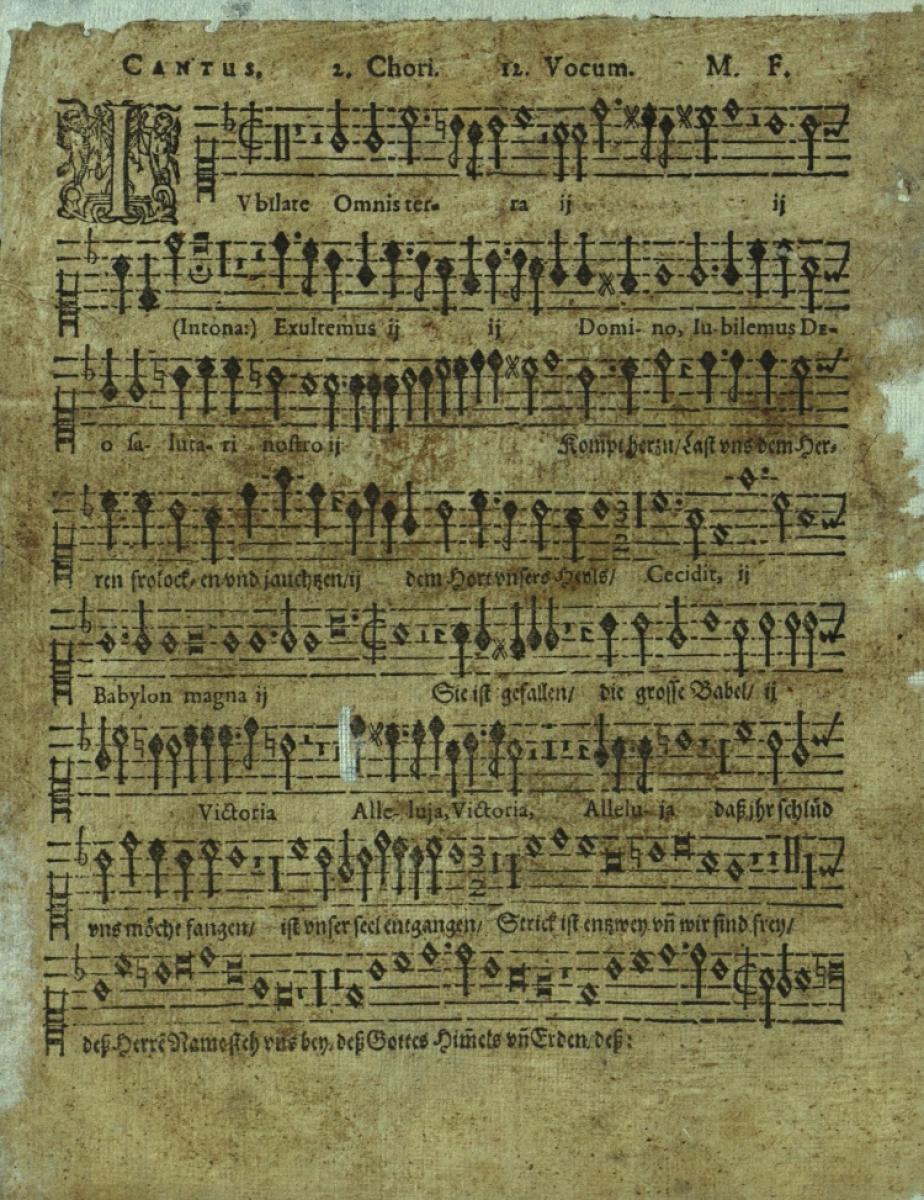 CANTUS. 2. Chori. 12. Vocum. M. F.
IVbilate Omnis ter- ra ij ij
(Intona:) Exultemus ij ij Domi- no, Iu-bilemus De-
o sa- luta- ri nostro ij Kompt herzu/ Last vns dem Her-
ren frolock- en vnd jauchtzen/ ij dem Hort vnsers Heyls/ Cecidit, ij
Babylon magna ij Sie ist gefallen/ die grosse Babel/ ij
Victoria Alle- luja, Victoria, Allelu- ja daß jhr schlūd
vns möcht fangen/ ist vnser seel entgangen/ Strick ist entzwey vñ wir sind frey/
deß Herrē Name steh vns bey, deß Gottes Him̄els vñ Erden/ deß: